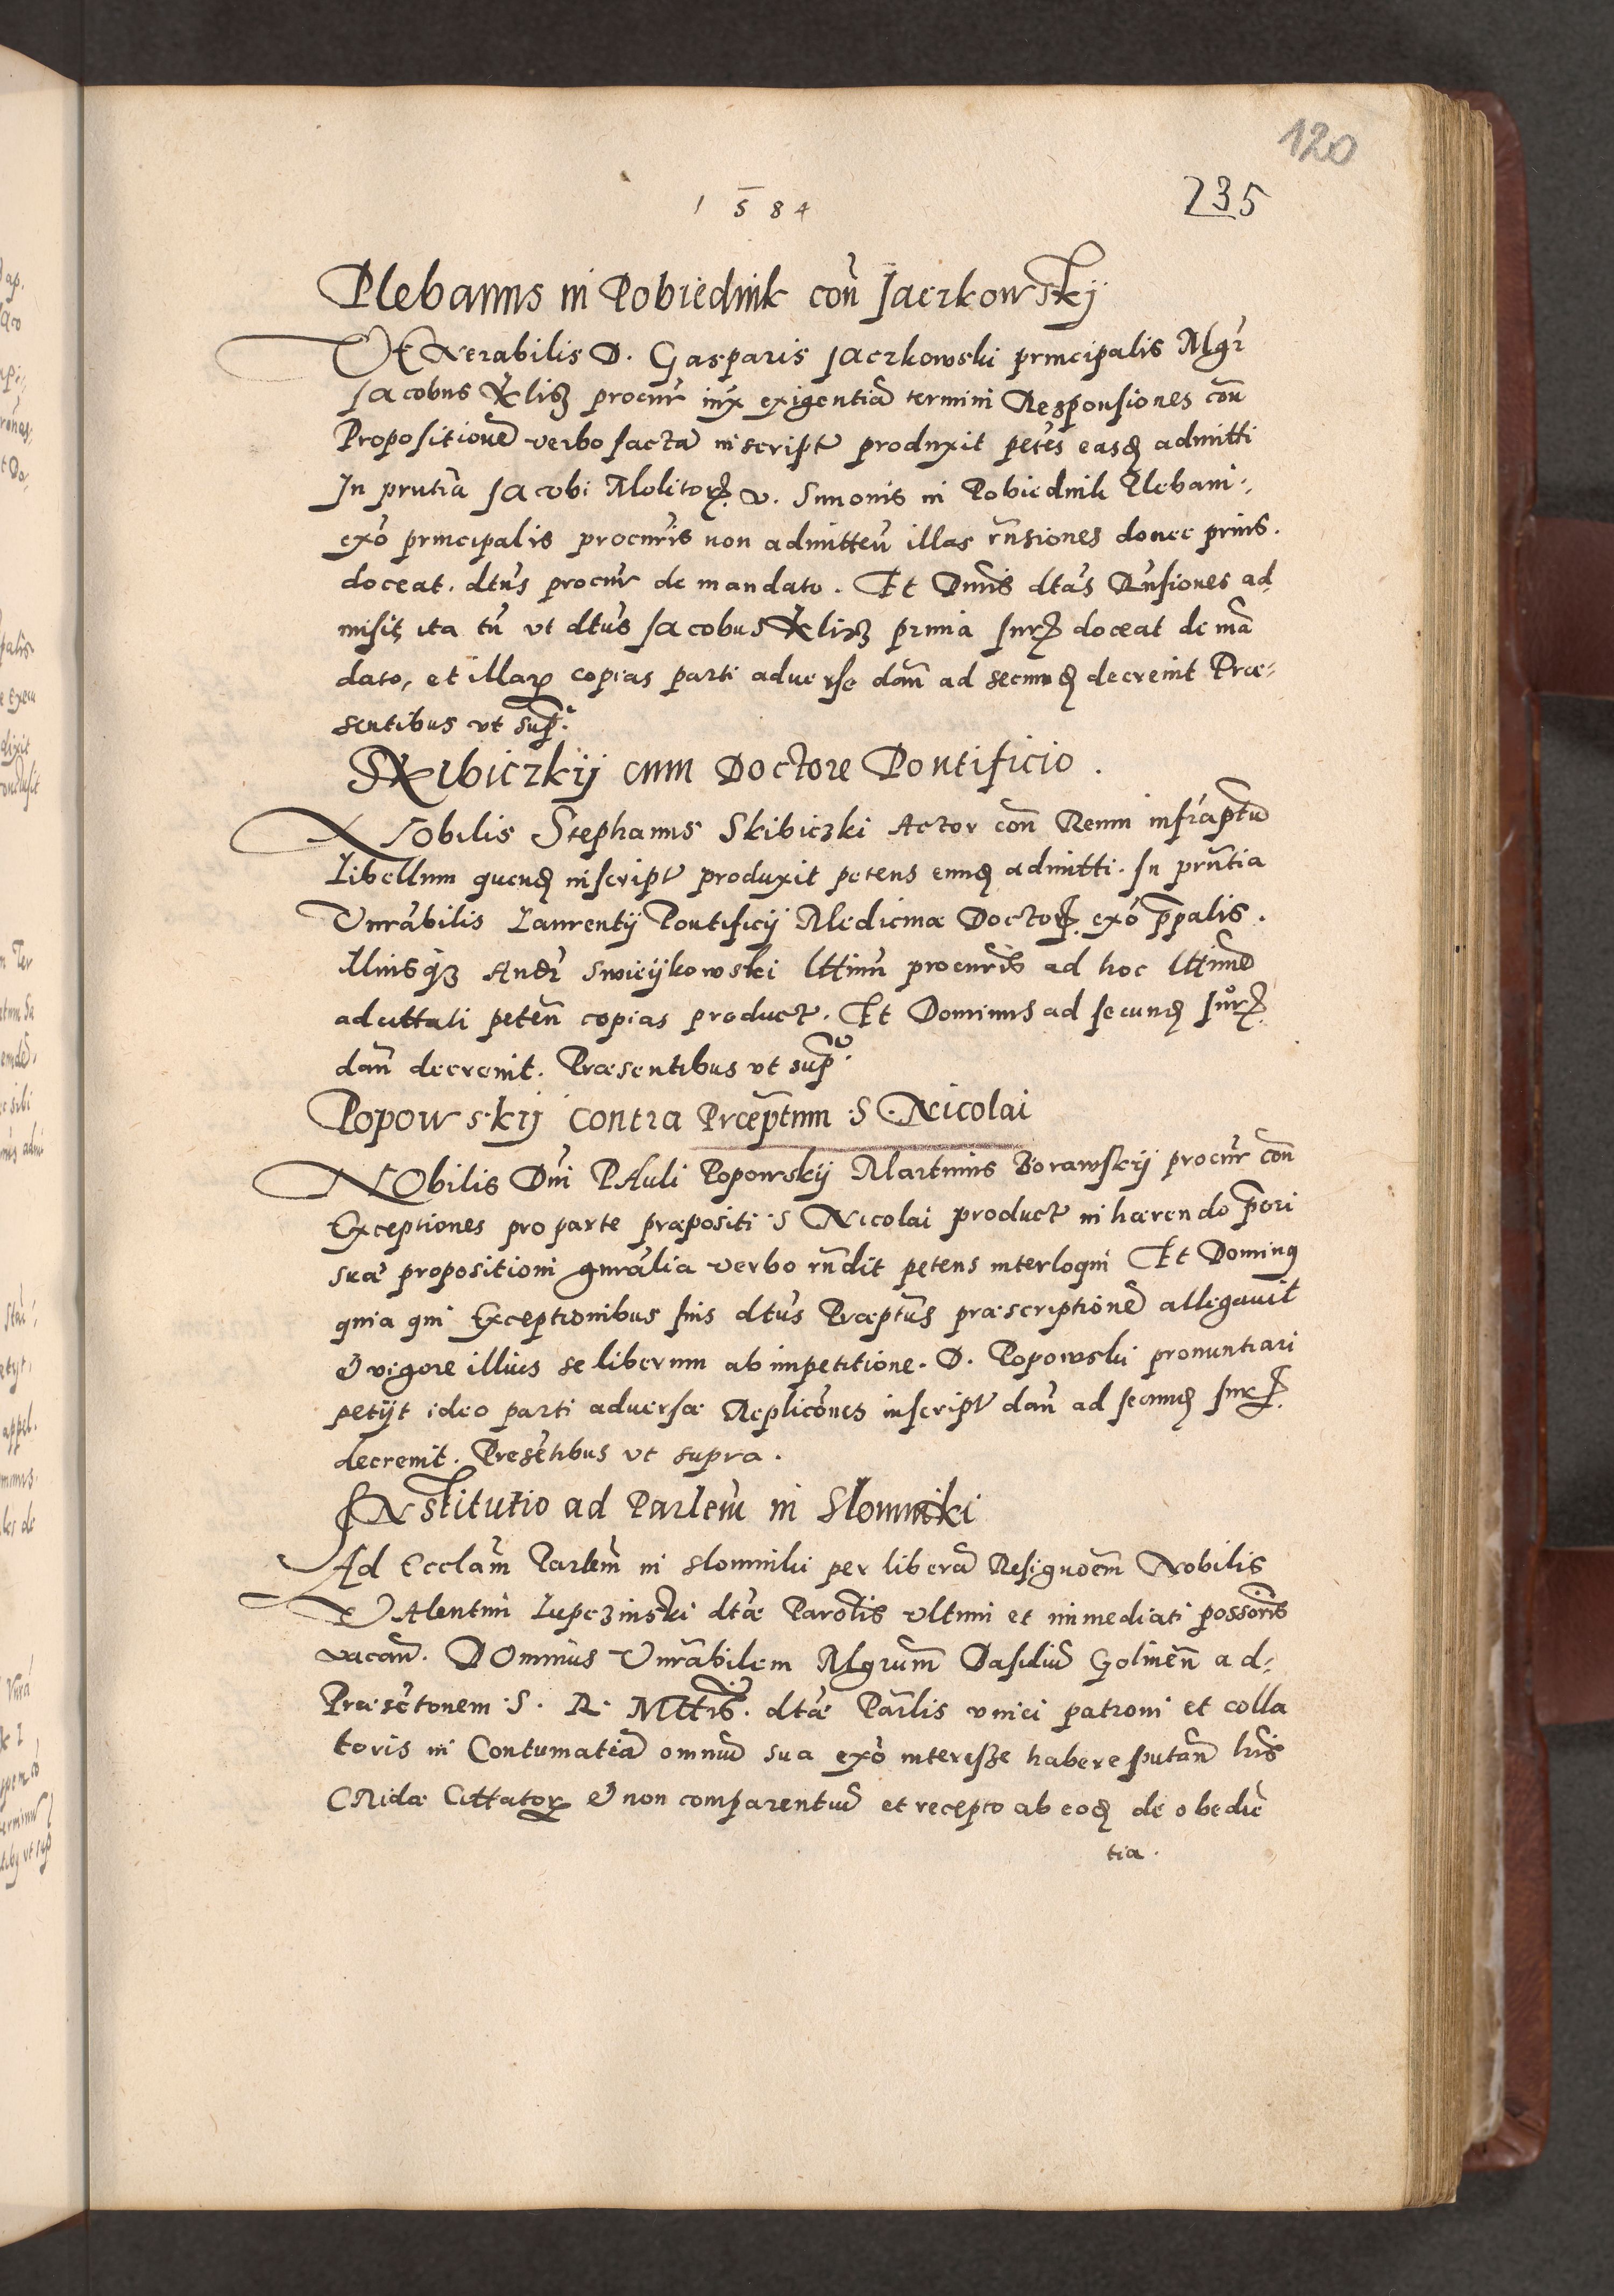 120
235
1584
Plebanus in Pobiednik coñ Jaczkowskij
VEnerabilis D. Gasparis Jaczkowski principalis Mgr
Jacobus procur iux exigentiã termini Responsiones coñ
Propositionẽ verbo factã in script produxit petẽs easdẽ admitti
In prntia Jacobi Molitoris v. Simonis in Pobiednik Plebani
exõ principalis procuris non admitteñ illas rñsiones donec prius.
doceat. dtus procur de mandato. Et Dnus dtas Rnsiones ad-
misit, ita tñ vt dtus Jacobus prima Juris doceat de mã
dato, et illarum copias parti aduerse dañ ad secundã decreuit Præ-
sentibus vt supra
SKibiczkij cum Doctore Pontificio.
NObilis Stephanus Skibiczki Actor coñ Reum infraptũ
Libellum quendã in script produxit petens eundẽ admitti. In prntia
Vnrabilis Laurentij Pontificij Medicinæ Doctoris exõ ppalis.
Illiusq3 Andr Swieijkowski lttimũ procuris ad hoc lttime
adcittati peteñ copias product. Et Dominus ad secundã Juris
dañ decreuit. Præsentibus vt supra.
Popowskij contra Præptum S. Nicolai
NObilis Dñi PAuli Popowskij Martinus Borawskij procur coñ
Exceptiones pro parte præpositi S Nicolai product in hærendo priori
suæ propositioni gnralia verbo rñdit petens interloqui Et Dominus
quia qui Exceptionibus suis dtus Præptus præscriptionẽ allegauit
& vigore illius se liberum ab impetitione. D. Popowski pronuntiari
petijt ideo parti aduersæ Replicões in script dañ ad secundã Juris
decreuit. Presẽtibus vt supra.
INstitutio ad Parlem in Slomniki
Ad Ecclãm Parlem in Slomniki per liberã Resignõem Nobilis
VAlentini Lupczinski dtæ Parolis vltimi et immediati possoris
vacañ. DOminus Vnrabilem Mgrum Golineñ ad
Præsẽtonem S. R. Mttis. dtæ Parlis vnici patroni et colla
toris in Contumatiã omniũ sua exõ interesse habere putañ lris
CRidæ Cittatorum & non comparentiũ et recepto ab eodẽ de obediẽ
tia.